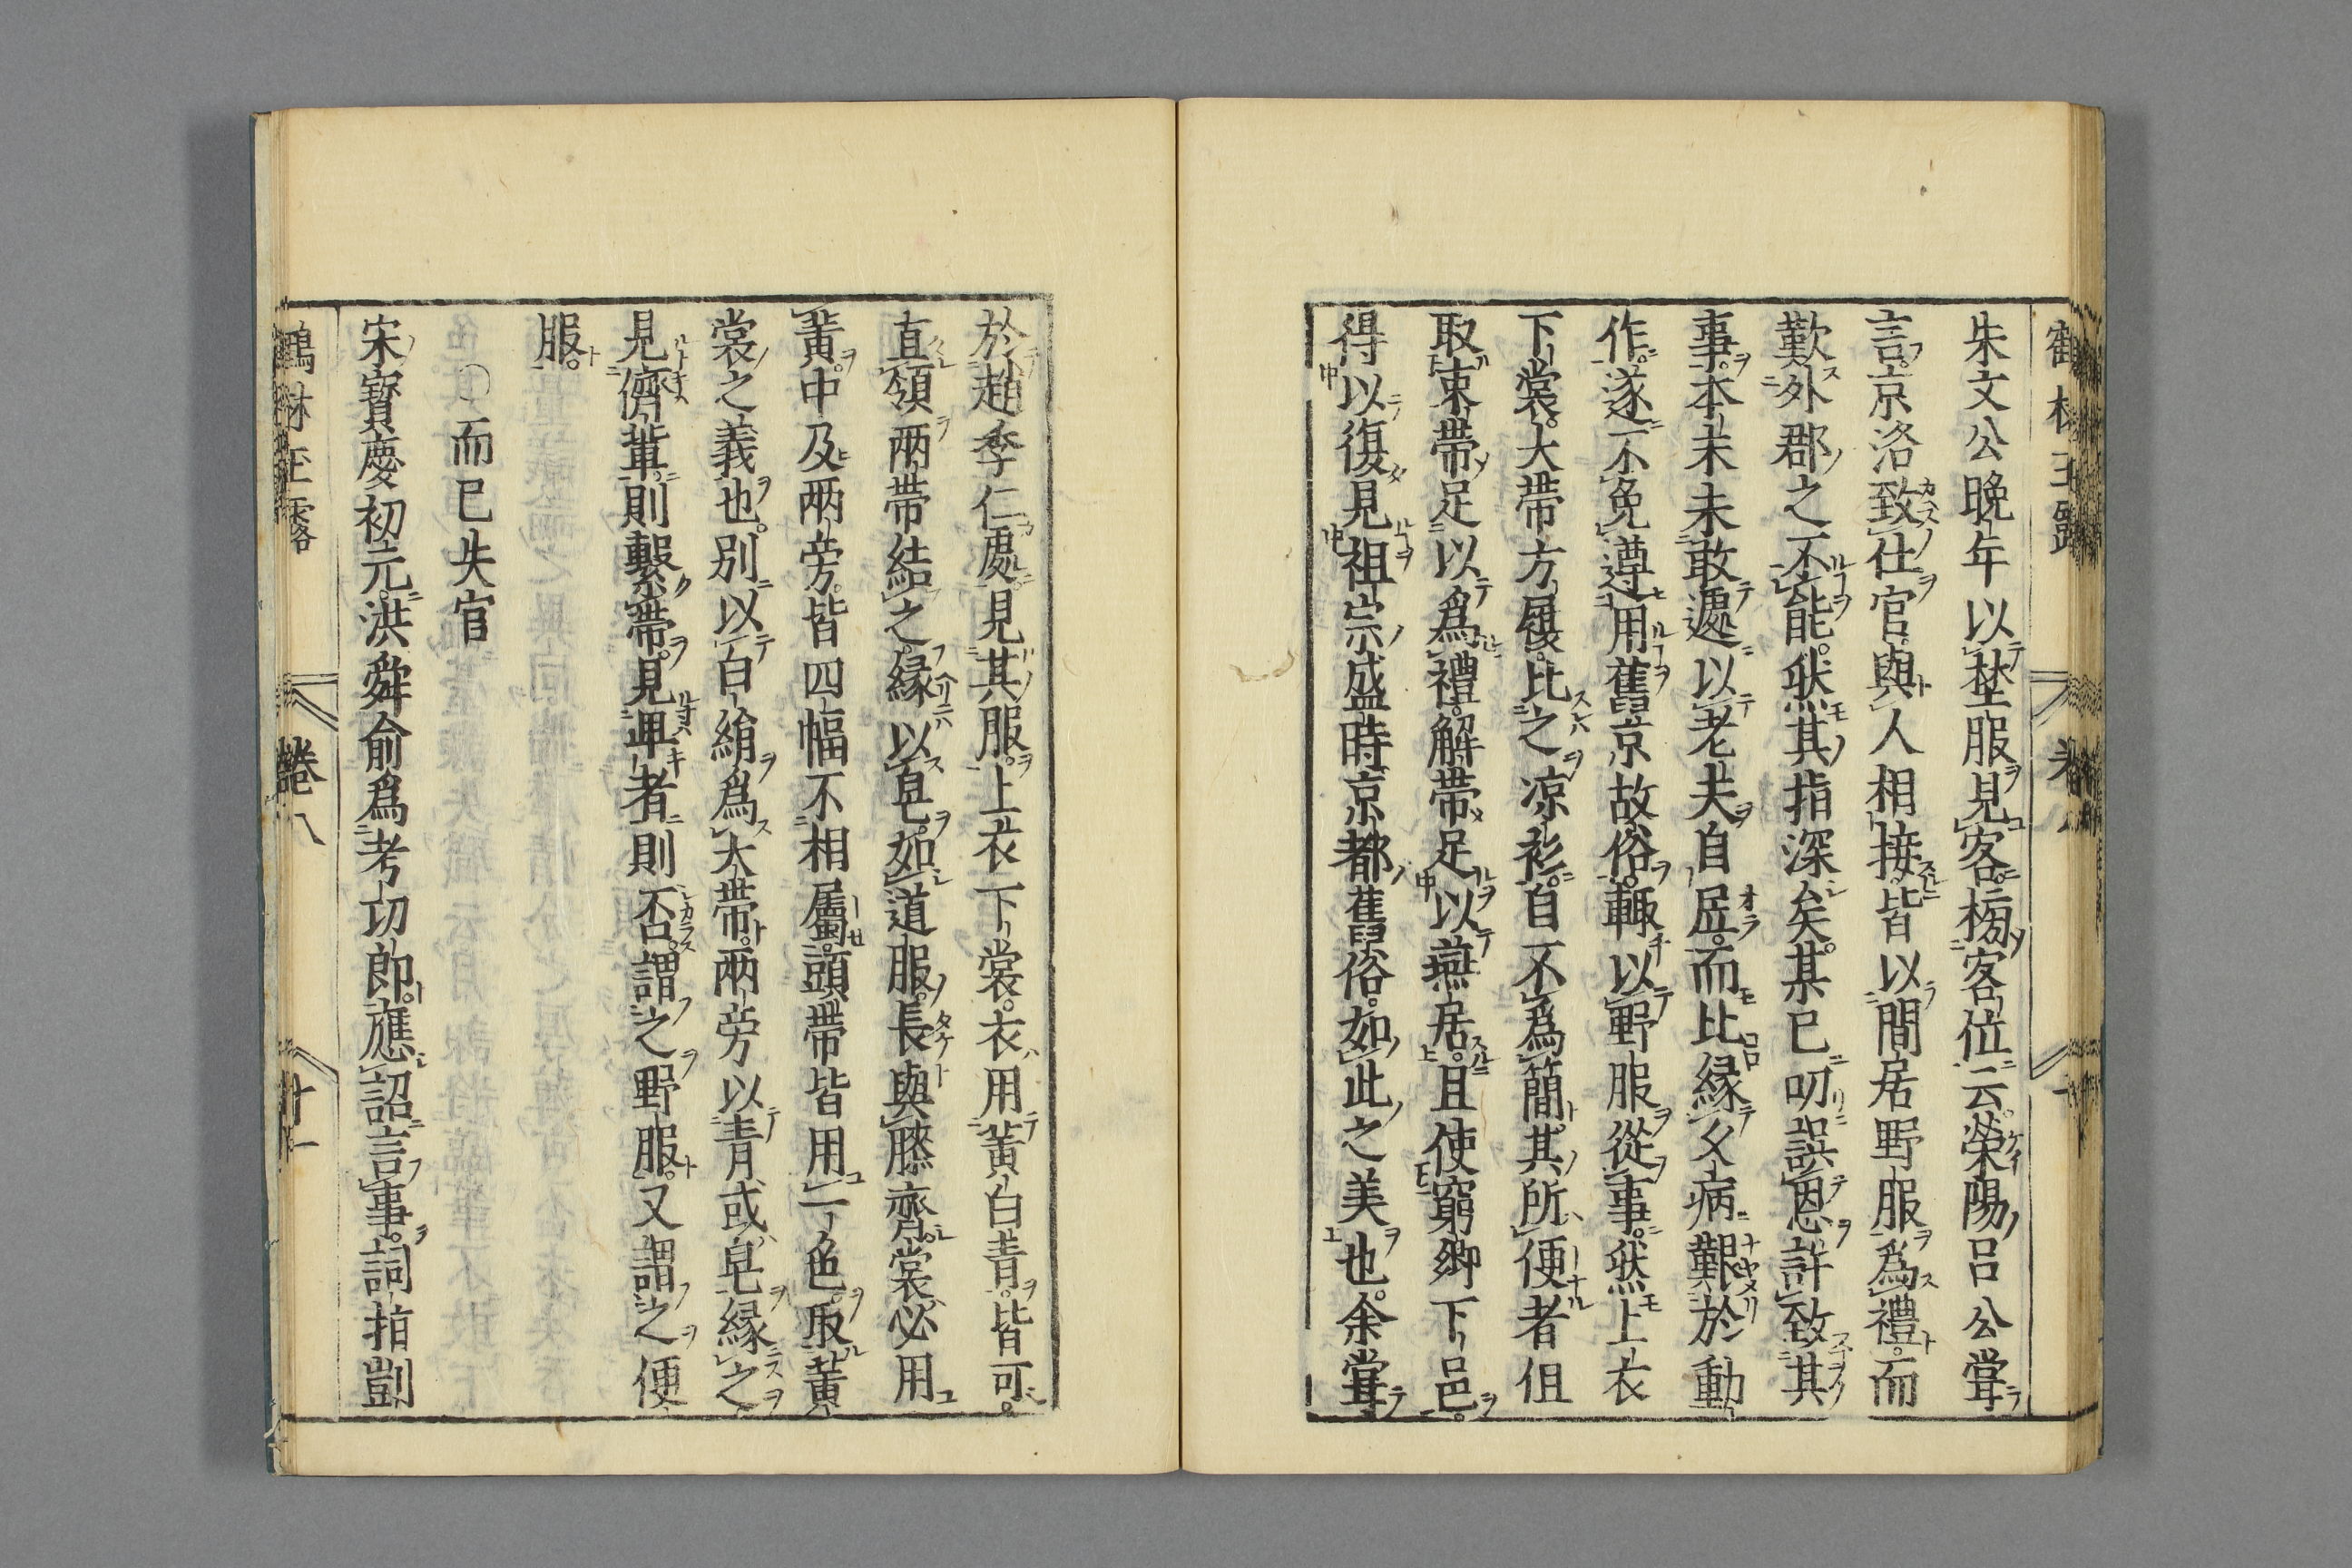 鶴林玉露
卷八
朱文公晚年以埜服見客榜客位云榮陽呂公甞
言京洛致仕官與人相接皆以閒居野服爲禮而
歎外郡之不能然其指深矣某已叨誤恩許致其
事本未未敢遽以老夫自居而比緣久病艱於動
作遂不免遵用舊京故俗輙以野服從事然上衣
下裳大帶方履比之凉衫自不爲簡其所便者但
取束帶足以爲禮解帶足以燕居且使窮鄉下邑
得以復見祖宗盛時京都舊俗如此之美也余甞
於趙季仁處見其服上衣下裳衣用黃白青皆可
直領兩帶結之緣以皂如道服長與膝齊裳必用
黃中及兩旁皆四幅不相屬頭帶皆用一色取黃
裳之義也別以白絹爲大帶兩旁以青或皂緣之
見儕輩則繫帶見卑者則否謂之野服又謂之便
服
○而已失官
宋寳慶初元洪舜俞爲考功郎應詔言事詞指剴
鶴林玉露
卷八
廿一